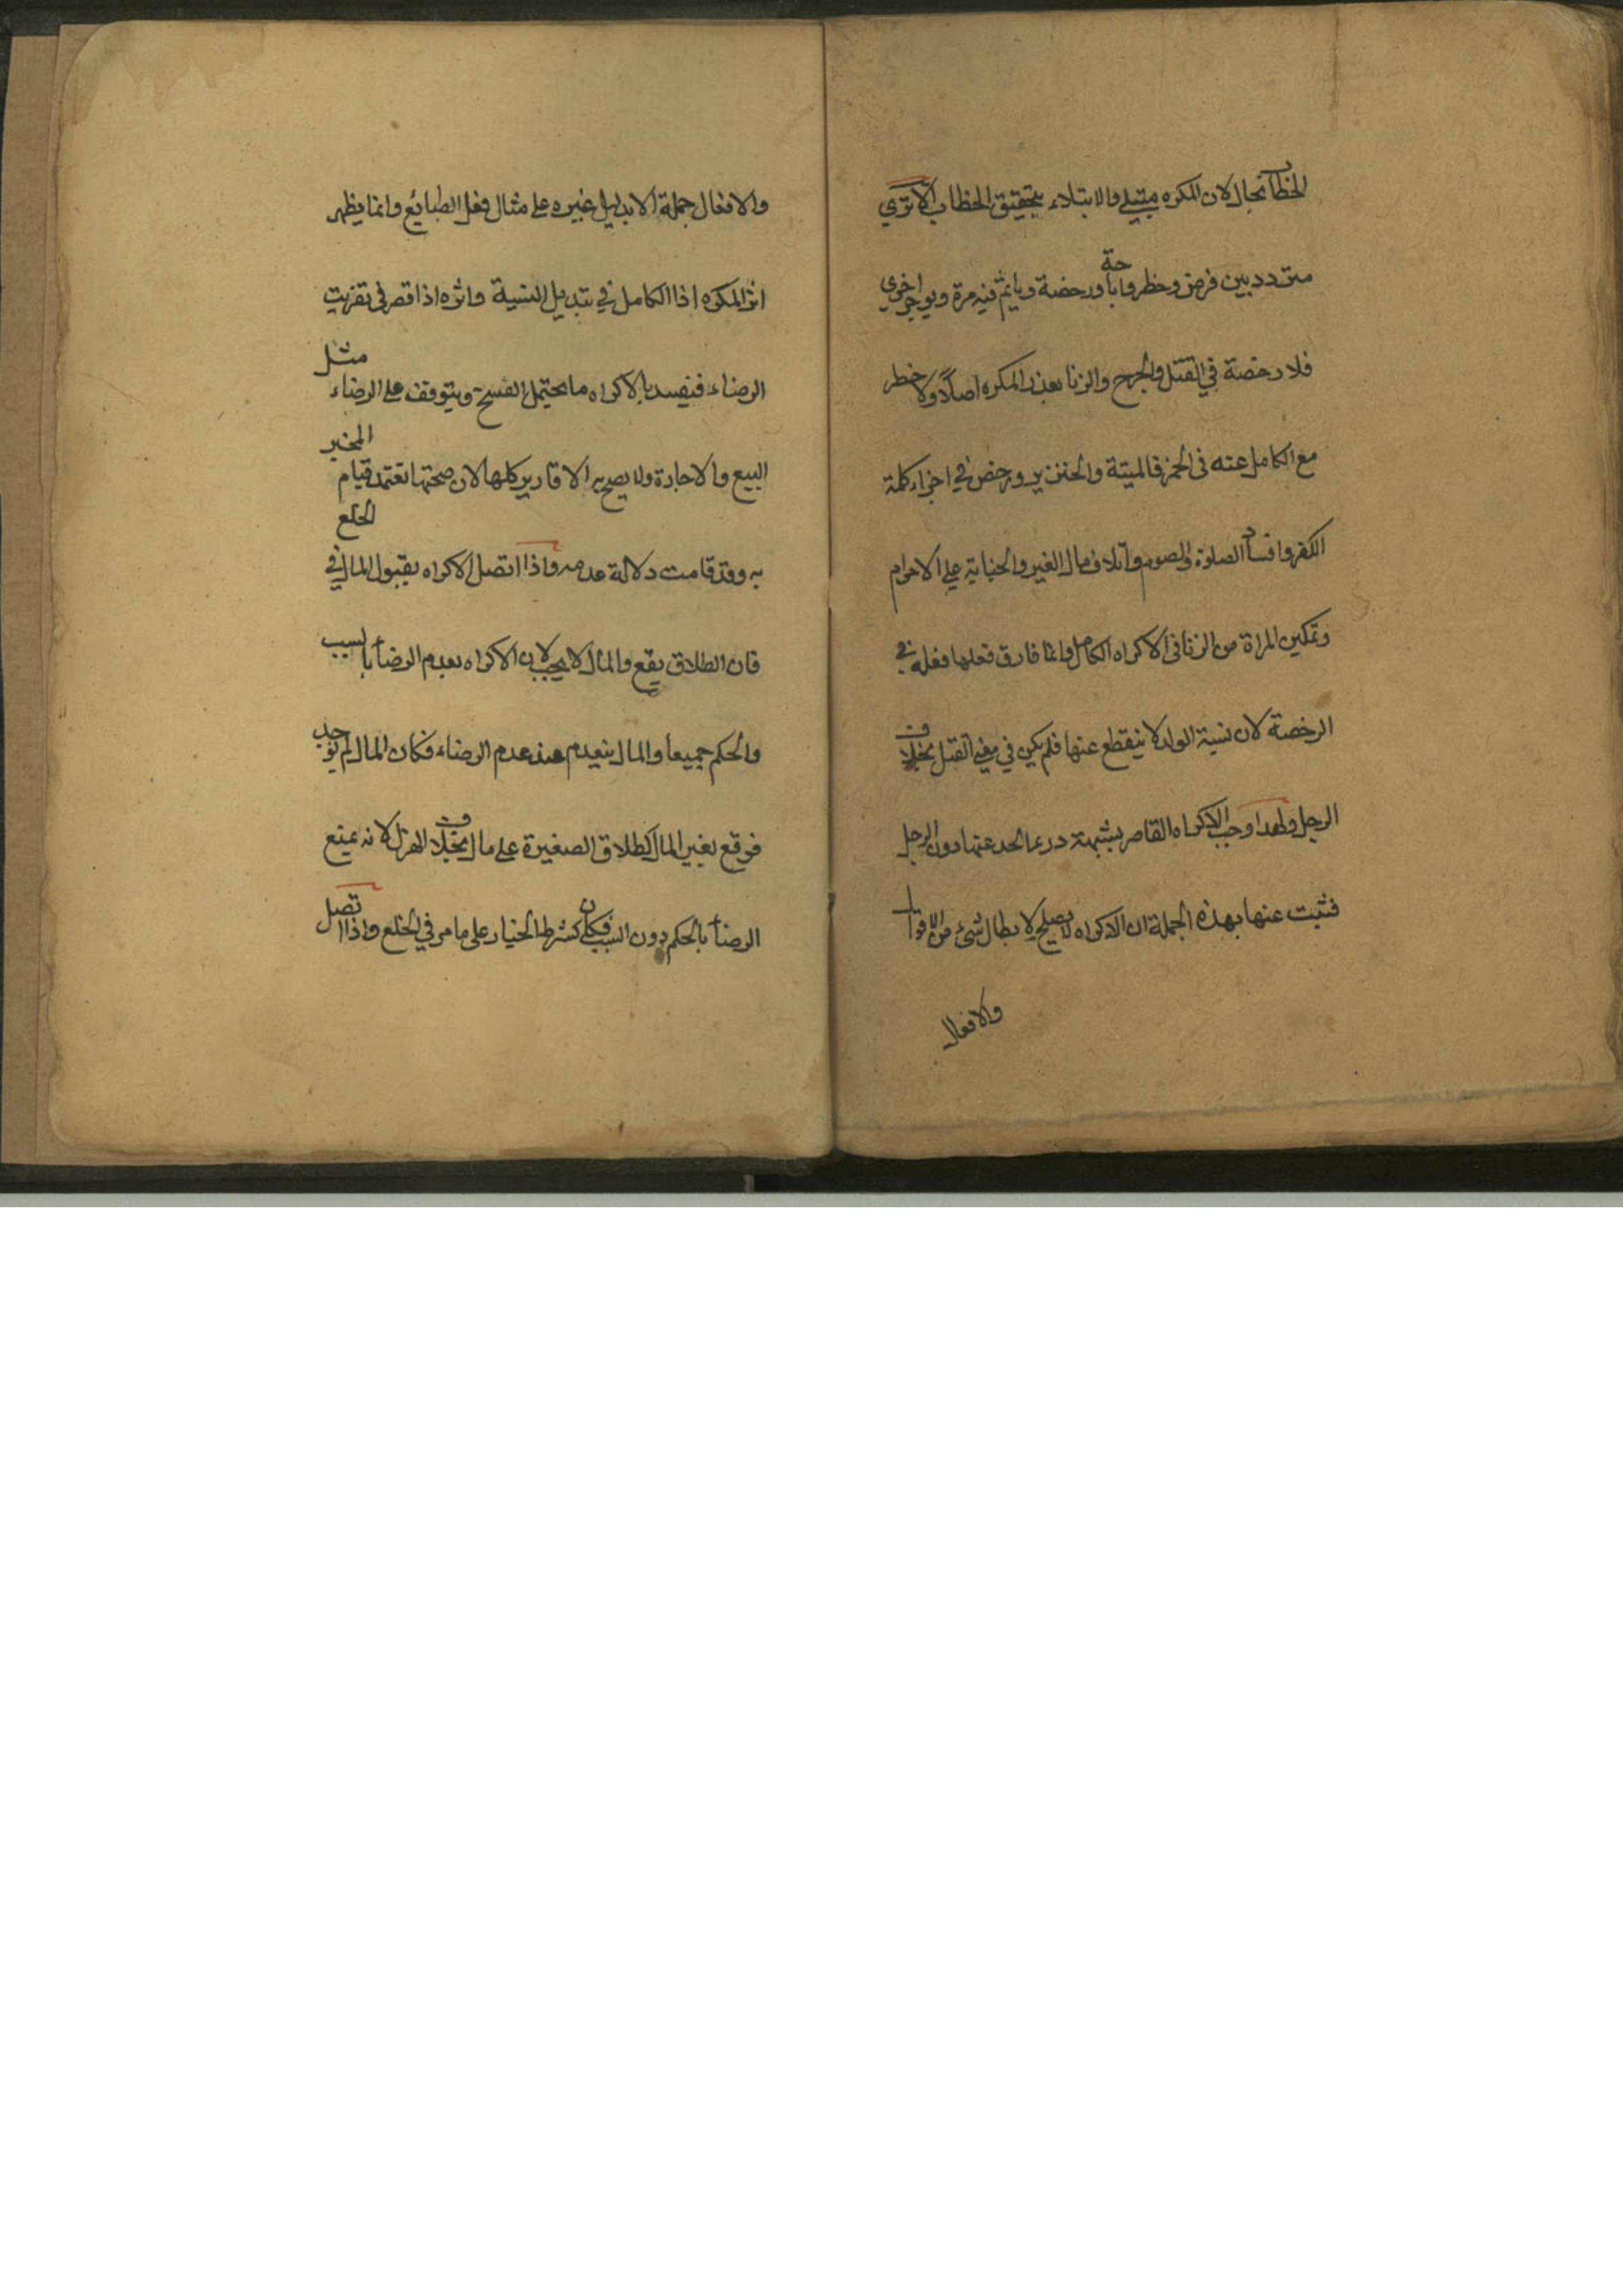 الخطاب بحال لان المكره مبتلى والابتلاء بتحقيق الخطاب الا ترى
متردد بين فرض وحظر واباحة ورخصة ويأثم فيه مرة ويوجر اخرى
فلا رخصة في القتل والجرح والزنا بعذر المكره اصلا ولا حظر
مع الكامل عنه في الخمر فالميتة والخنزير ورخص في اجراء كلمة
الكفر وافساد الصلوة والصوم واتلاف مال الغير والجناية على الاحرام
وتمكين المراة من الزنا في الاكراه الكامل وانما فارق فعلها فعله في
الرخصة لان نسبة الولد لا ينقطع عنها فلم يكن في معنى القتل بخلاف
الرجل ولهذا وجب الاكراه القاصر بشبهة درء الحد عنها دون الرجل
فثبت عنها بهذه الجملة ان الاكراه لا يصلح لابطال شيء من الاقوال
والافعال
والافعال جملة الا بدليل غيره على مثال فعل الطبائع وانما يظهر
اثر المكره اذا الكامل في تبديل النسبة واثره اذا قصر في تفويت
الرضاء فيفسد بالاكراه ما يحتمل الفسخ ويتوقف على الرضاء مثل
البيع والاجارة ولا يصح به الاقارير كلها لان صحتها تعتمد قيام المخبر
به وقد قامت دلالة عدمه واذا اتصل الاكراه بقبول المال في الخلع
فان الطلاق يقع والمال لا يجب لان الاكراه يعدم الرضأ بالسبب
والحكم جميعا والمال ينعدم عند عدم الرضاء فكان المال لم يوجد
فوقع بغير المال كطلاق الصغيرة على مال بخلاف الهزل لانه يمنع
الرضأ بالحكم دون السبب فكان كشرط الخيار على ما مر في الخلع واذا اتصل